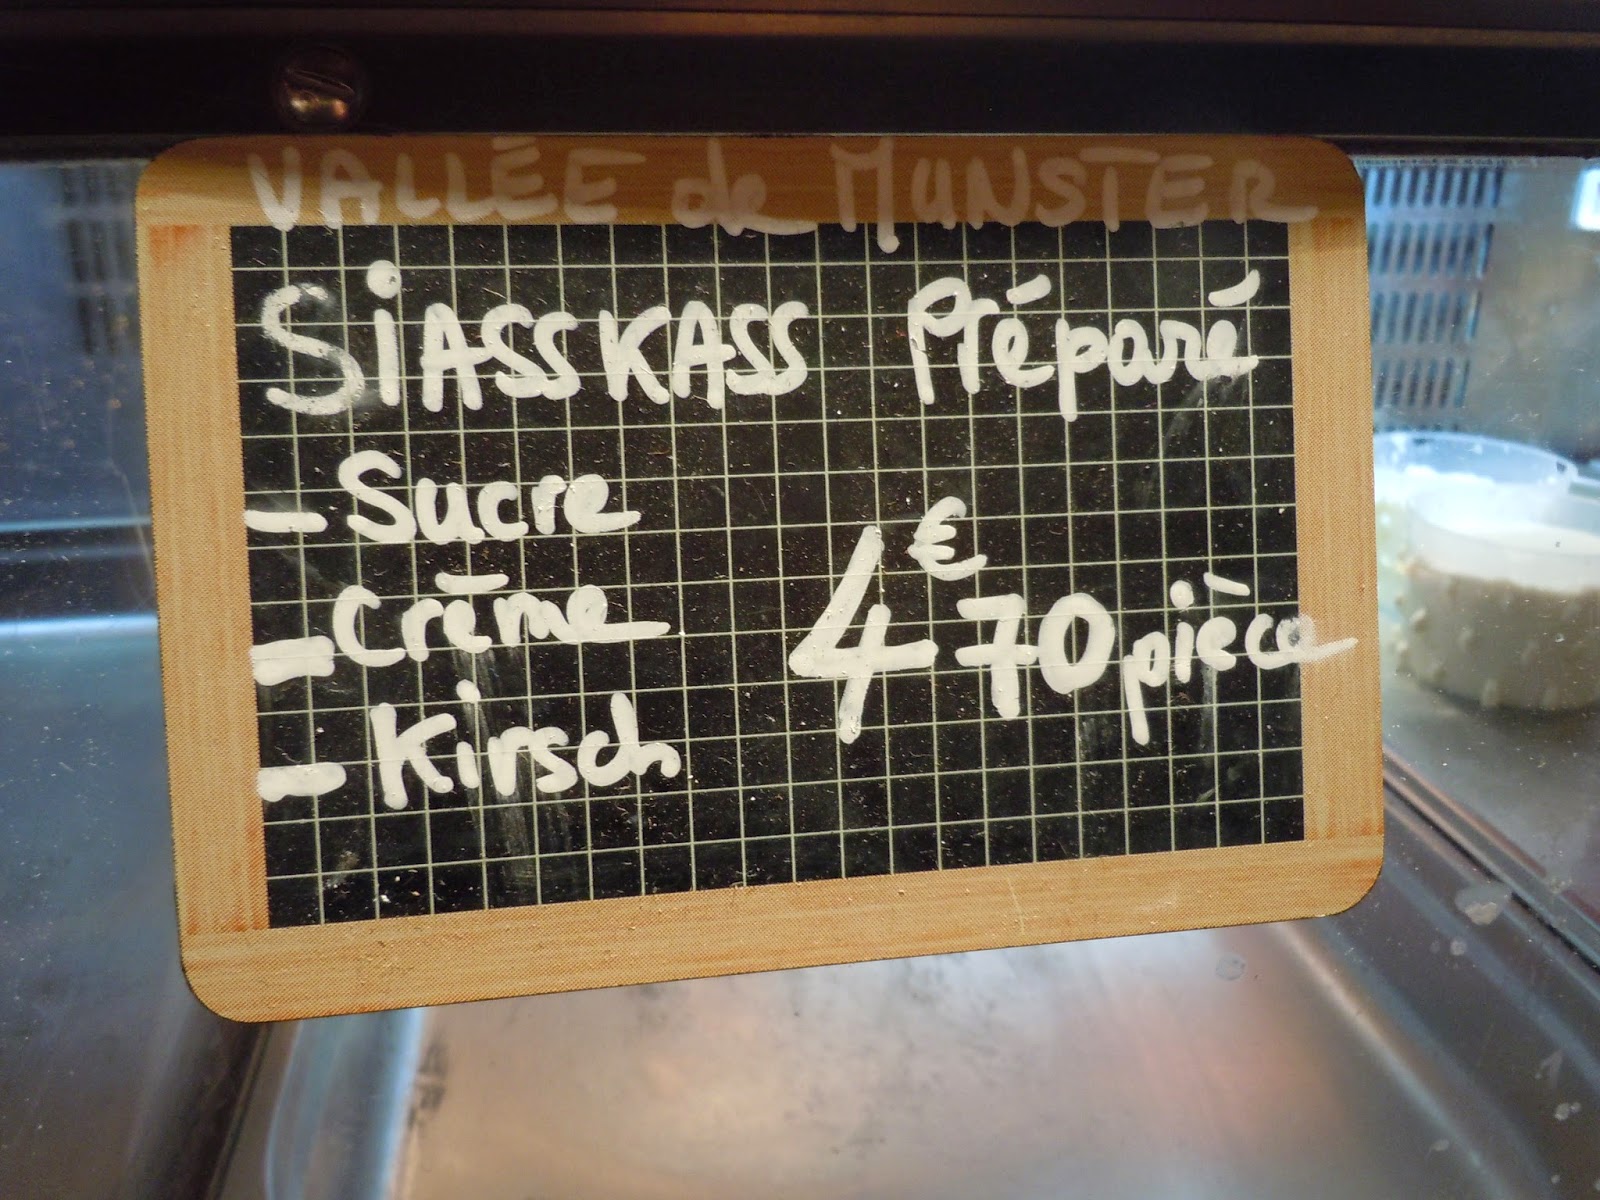 VALLÉE de MUNSTER
SiASSKASS Préparé
- Sucre
- Crème
- Kirsch
4€70 pièce